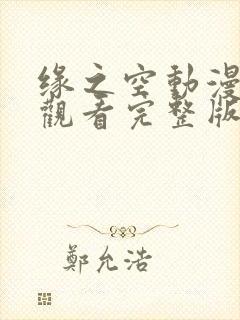 緣之空動漫
觀看完整版
鄭允浩